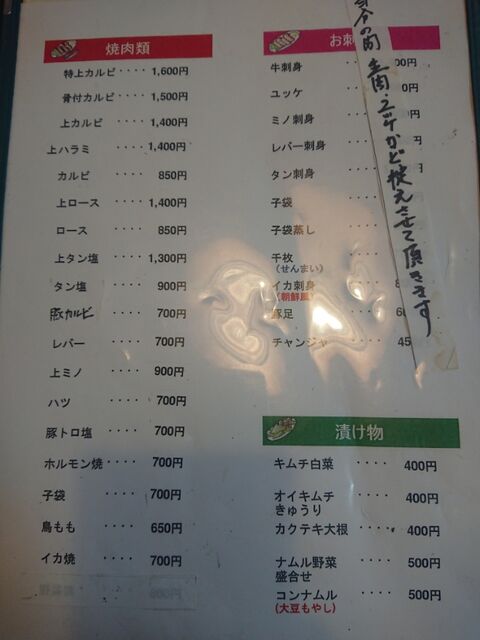 焼肉類
特上カルビ ････ 1,600円
骨付カルビ ････ 1,500円
上カルビ ････ 1,400円
上ハラミ ････ 1,400円
カルビ ････ 850円
上ロース ････ 1,400円
ロース ････ 850円
上タン塩 ････ 1,300円
タン塩 ････ 900円
豚カルビ ････ 700円
レバー ････ 700円
上ミノ ････ 900円
ハツ ････ 700円
豚トロ塩 ････ 700円
ホルモン焼 ････ 700円
子袋 ････ 700円
鳥もも ････ 650円
イカ焼 ････ 700円
お刺
牛刺身
ユッケ
ミノ刺身
レバー刺身
タン刺身
子袋
子袋蒸し
千枚
(せんまい)
イカ刺身
(朝鮮風)
豚足
チャンジャ ････ 45
当分の間 生肉・ユッケなど控えさせて頂きます
漬け物
キムチ白菜 ････ 400円
オイキムチ ････ 400円
きゅうり
カクテキ大根 ････ 400円
ナムル野菜 ････ 500円
盛合せ
コンナムル ････ 500円
(大豆もやし)